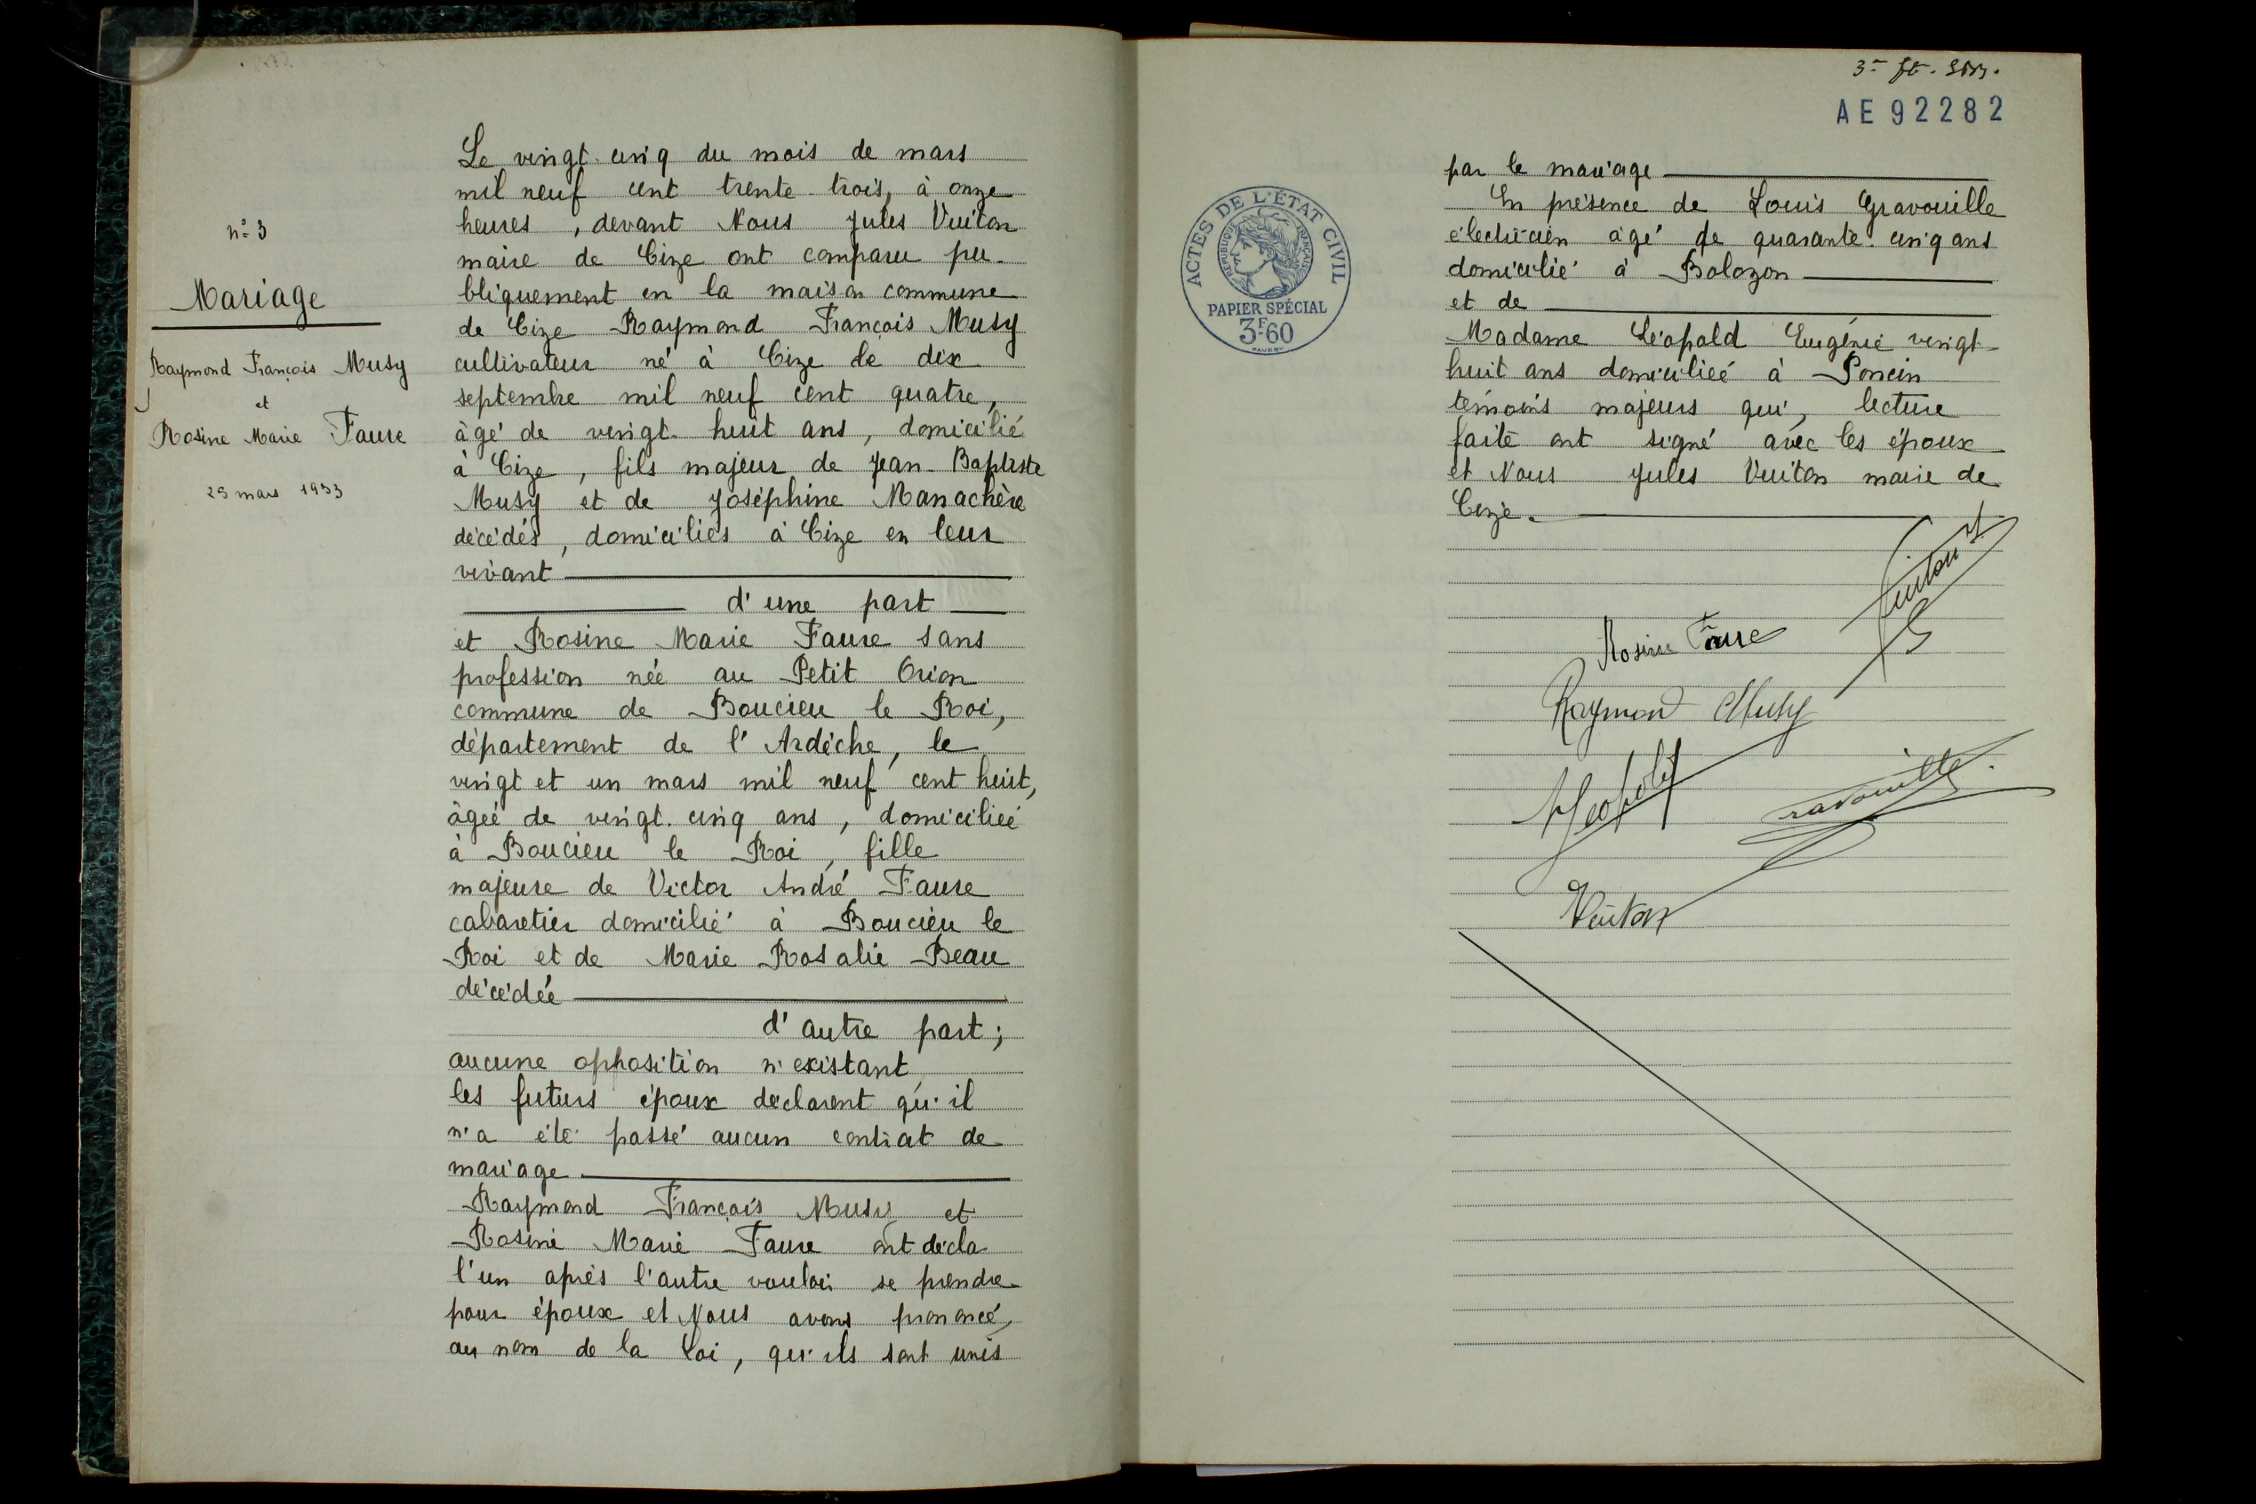 n° 3
Mariage
Raymond François Musy
et
Rosine Marie Faure
25 mars 1933
Le vingt-cinq du mois de mars
mil neuf cent trente-trois, à onze
heures, devant Nous Jules Vuiton
maire de Cize ont comparu pu-
bliquement en la maison commune
de Cize Raymond François Musy
cultivateur né à Cize le dix
septembre mil neuf cent quatre,
âgé de vingt-huit ans, domicilié
à Cize, fils majeur de Jean-Baptiste
Musy et de Joséphine Manachère
décédés, domiciliés à Cize en leur
vivant
d'une part
et Rosine Marie Faure sans
profession née au Petit Orion
commune de Boucieu le Roi,
département de l'Ardèche, le
vingt et un mars mil neuf cent huit,
âgée de vingt-cinq ans, domiciliée
à Boucieu le Roi, fille
majeure de Victor André Faure
cabaretier domicilié à Boucieu le
Roi et de Marie Rosalie Beau
décédée
d'autre part;
aucune opposition n'existant
les futurs époux déclarent qu'il
n'a été passé aucun contrat de
mariage
Raymond François Musy et
Rosine Marie Faure ont décla
l'un après l'autre vouloir se prendre
pour époux et Nous avons prononcé,
au nom de la Loi, qu'ils sont unis
AE 92282
ACTES DE L'ÉTAT CIVIL
RÉPUBLIQUE FRANÇAISE
PAPIER SPÉCIAL
3F60
par le mariage
En présence de Louis Gravouille
électricien âgé de quarante-cinq ans
domicilié à Bolozon
et de
Madame Léopold Eugénie vingt-
huit ans domiciliée à Poncin
témoins majeurs qui, lecture
faite ont signé avec les époux
et Nous Jules Vuiton maire de
Cize.
Vuiton
Rosine Faure
Raymond Musy
Léopold
Gravouille
Vuiton